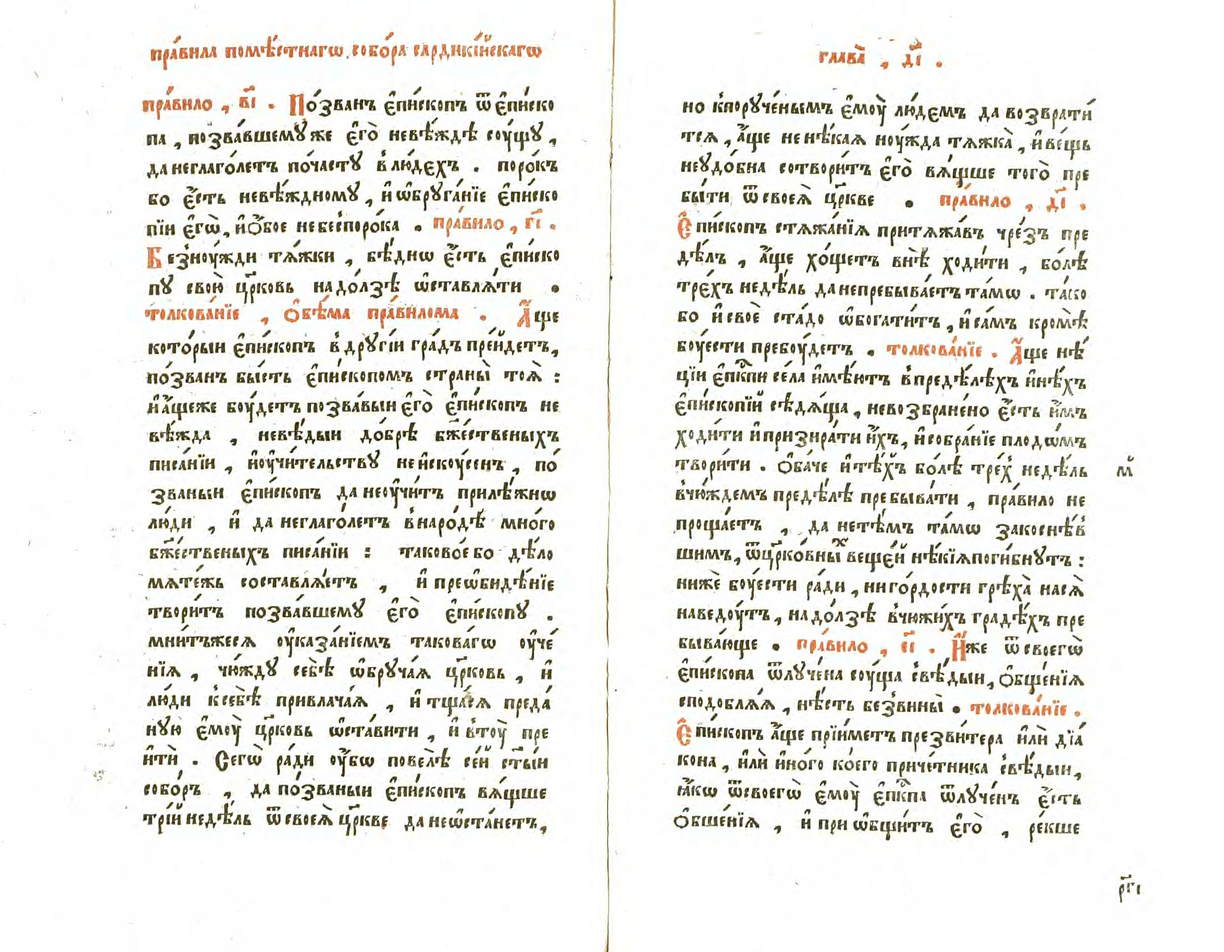 пра́вила помѣ́стнагѡ собо́ра сардикі́йскагѡ
пра́вило , в҃і . По́званъ є҆пи́скопъ ѿ є҆пи́ско
па , позва́вшемꙋже є҆го̀ невѣ́ждѣ сꙋ́щꙋ ,
данеглаго́летъ поча́стꙋ в лю́дехъ . поро́къ
бо є҆́сть невѣ́ждномꙋ , и҆ ѡ҆брꙋга́нїе є҆пи́ско
пїи є҆гѡ̀ , и҆ о҆́бое небеспоро́ка . пра́вило , г҃і .
Безноу́жди тѧ́жки , бѣ́днѡ є҆́сть є҆пи́ско
пꙋ свою̀ цр҃ковь надо́лзѣ ѡ҆ставлѧ́ти .
толкова́нїе , о҆бѣ́ма пра́вилома . А҆́ще
которыи є҆пи́скопъ в дрꙋгі́и гра́дъ прїи́детъ ,
по́званъ бы́сть є҆пи́скопомъ страны̀ тоѧ̀ :
и҆ а҆́щеже бꙋ́детъ позва́выи є҆го̀ є҆пи́скопъ не
вѣ́жда , невѣ́дыи до́брѣ бж҃ественыхъ
писа́нїи , и҆ оу҆чи́тельствꙋ не и҆скоу́сенъ , по́
званыи є҆пи́скопъ да неоу҆чи́тъ прилѣ́жнѡ
лю́ди , и҆ да неглаго́летъ в наро́дѣ мно́го
бж҃ественыхъ писа́нїи : таково́е бо дѣ́ло
мѧте́жь составлѧ́етъ , и҆ преѡби́дѣнїе
твори́тъ позва́вшемꙋ є҆го̀ є҆пи́скопꙋ .
мни́тъжесѧ оу҆каза́нїемъ такова́гѡ оу҆че́
нїѧ , чю́ждꙋ себѣ̀ ѡ҆брꙋча́ѧ цр҃ковь , и҆
лю́ди к себѣ̀ привлача́ѧ , и҆ тща́сѧ преда́
нꙋю є҆моу̀ цр҃ковь ѡ҆ста́вити , и҆ втоу̀ пре
и҆ти́ . Сегѡ̀ ра́ди оу҆́бѡ повелѣ̀ се́й ст҃ы́и
собо́ръ , да по́званыи є҆пи́скопъ вѧ́щше
трїи́ недѣ́ль ѿ своеѧ̀ цр҃кве да неѡста́нетъ ,
глава̀ , д҃і .
но кпорꙋче́нымъ є҆моу̀ лю́демъ да возврати́
тсѧ , а҆́ще не нѣ́каѧ ноу́жда тѧжка̀ , и҆ ве́щь
неꙋдо́бна сотвори́тъ є҆го̀ вѧ́щше того̀ пре
бы́ти ѿ своеѧ̀ цр҃кве . пра́вило , д҃і .
Є҆пи́скопъ стѧжа́нїѧ притѧжа́въ чре́зъ пре
дѣ́лъ , а҆́ще хо́щетъ внѣ̀ ходи́ти , бо́лѣ
тре́хъ недѣ́ль да непребыва́етъ та́мѡ . та́ко
бо и҆ своѐ ста́до ѡ҆богати́тъ , и҆ са́мъ кромѣ̀
боу́ести пребоу́детъ . толкова́нїе . А҆́ще нѣ́
цїи є҆пк҃пи се́ла и҆мѣ́ютъ в предѣ́лѣхъ и҆нѣ́хъ
є҆пи́скопїй сѣдѧ́ща , невозбране́но є҆́сть и҆̀мъ
ходи́ти и҆ призира́ти и҆̀хъ , и҆ собра́нїе плодѡ́мъ
твори́ти . О҆ба́че и҆ тѣ́хъ бо́лѣ тре́х недѣ́ль
вчю́ждемъ предѣ́лѣ пребыва́ти , пра́вило не
проща́етъ , да нетѣ́мъ та́мѡ закоснѣ́в
шимъ , ѿ црко́вных веще́й нѣ́кїѧ поги́бнꙋтъ :
нижѐ боу́ести ра́ди , ни го́рдости грѣха̀ насѧ̀
наведоу́тъ , надо́лзѣ вчюжи́хъ градѣ́хъ пре
быва́юще . пра́вило , є҃і . И҆́же ѿ своегѡ̀
є҆пи́скопа ѿлꙋче́на соу́ща свѣ́дыи , о҆бще́нїѧ
сподоблѧ́ѧ , нѣ́сть безвины̀ . толкова́нїе .
Є҆пи́скопъ а҆́ще прїи́метъ презви́тера и҆лѝ дїа́
кона , и҆лѝ и҆но́го ко́его приче́тника свѣ́дыи ,
ꙗ҆́кѡ ѿ своегѡ̀ є҆моу̀ є҆пк҃па ѿлꙋче́нъ є҆́сть
о҆бще́нїѧ , и҆ при ѡ҆бщи́тъ є҆го̀ , ре́кше
р҃гі